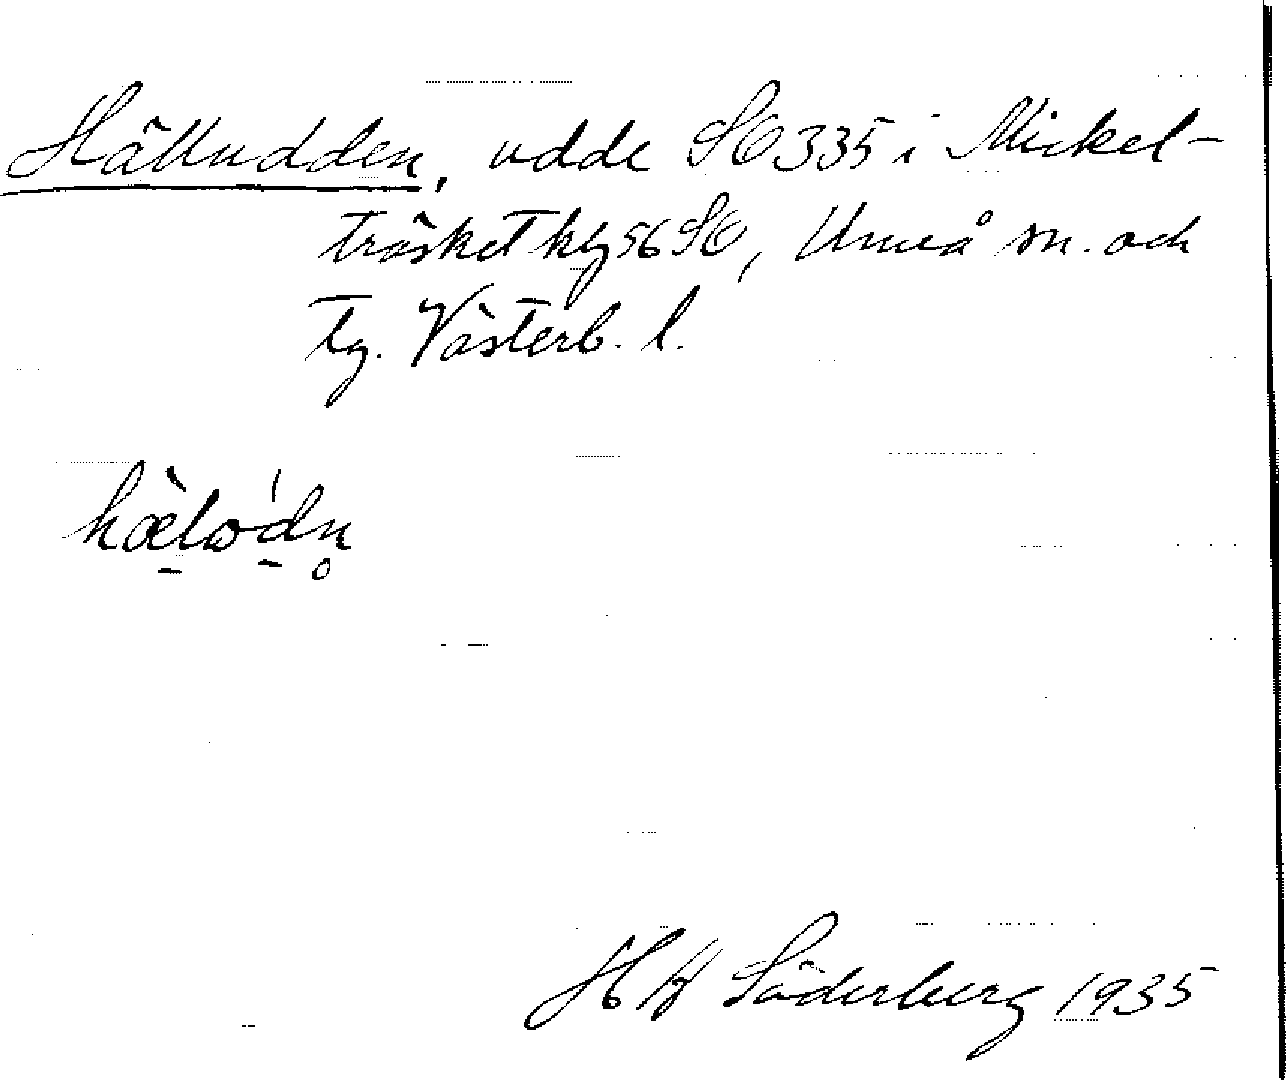 Hälludden, udde SO 335 i Mickel-
träsket kbj 56 SO, Umeå sn. och
tg. Västerb. l.
hæ̀lωd́n̥
H W Söderberg 1935